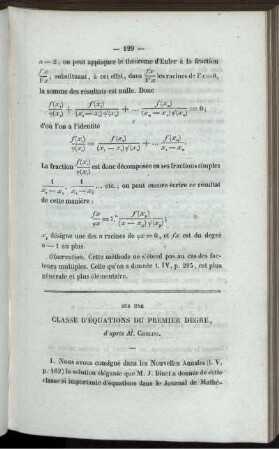 — 129 —
n — 2, on peut appliquer le théorème d'Euler à la fraction
fx/Fx, substituant, à cet effet, dans fx/F'x les racines de Fx=0,
la somme des résultats est nulle. Donc
f(x₁)/φ(x₁) + f(x₂)/(x₂—x₁)φ'(x₂) + ... f(xₙ)/(xₙ—x₁)φ'(xₙ) = 0;
d'où l'on a l'identité
f(x₁)/φ(x₁) = f(x₂)/(x₁—x₂)φ'(x₂) + ... f(xₙ)/x₁—xₙ.
La fraction f(x₁)/φ(x₁) est donc décomposée en ses fractions simples
1/x₁—x₂, 1/x₁—x₃, ... etc., on peut encore écrire ce résultat
de cette manière :
fx/φx = f(xₚ)/(x—xₚ)φ'(xₚ);
xₚ désigne une des n racines de φx=0, et fx est du degré
n — 1 au plus.
Observation. Cette méthode ne s'étend pas au cas des fac-
teurs multiples. Celle qu'on a donnée t. IV, p. 295, est plus
générale et plus élémentaire.
SUR UNE
CLASSE D'ÉQUATIONS DU PREMIER DEGRÉ,
d'après M.
1. Nous avons consigné dans les Nouvelles Annales (t. V,
p. 162) la solution élégante que M. J. Binet a donnée de cette
classe si importante d'équations dans le Journal de Mathé-